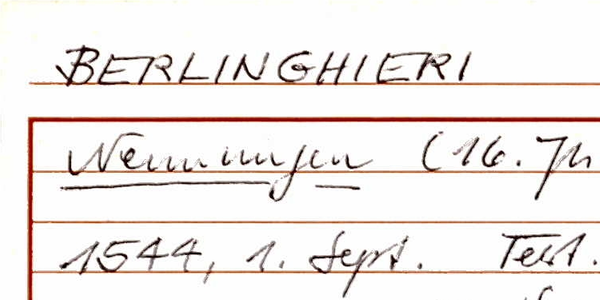 BERLINGHIERI
Nennungen (16. Jh
1544, 1. Sept. Test.